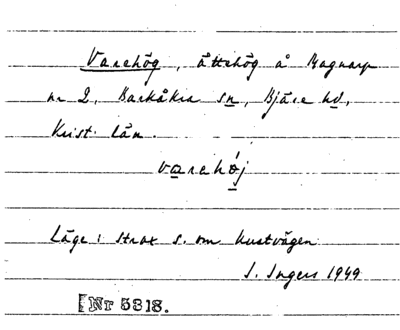 Varehög, ättehög å Magnarp
nr 2, Barkåkra sn, Bjäre hd,
Krist. län.
varehöj
Läge: strax s. om kustvägen
I. Ingers 1949
[Nr 5818.